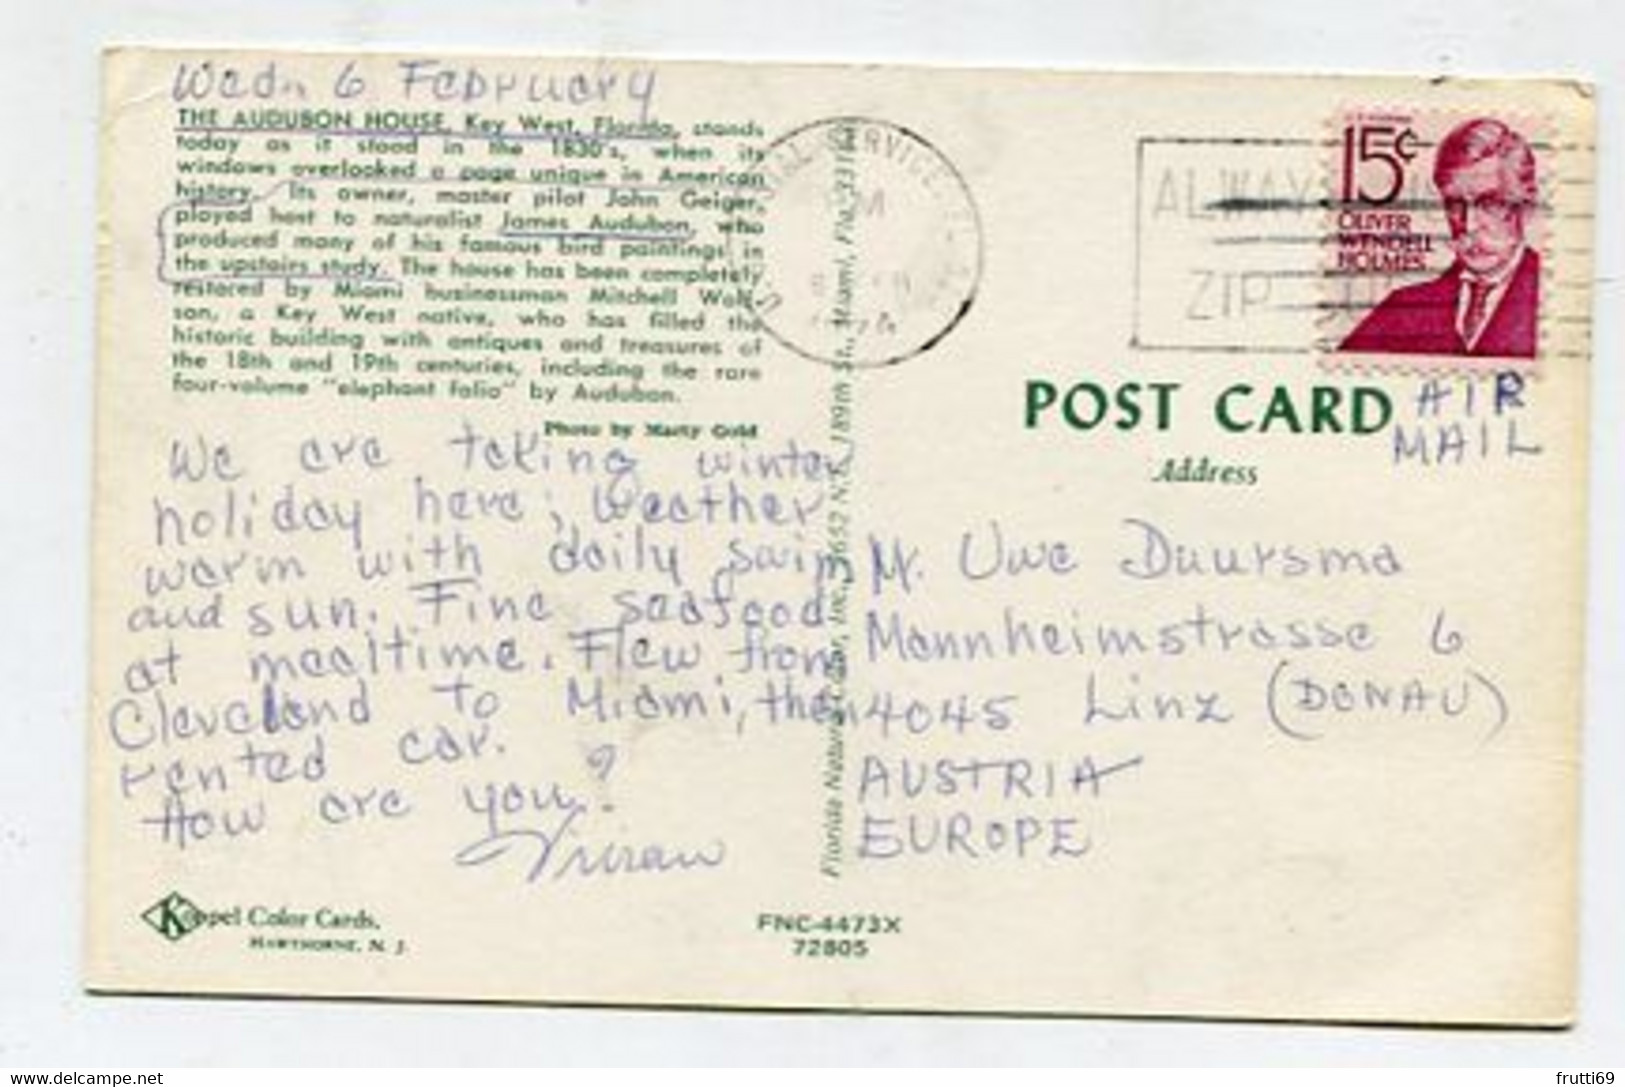 Wedn 6 February
THE AUDUBON HOUSE, Key West, Florida, stands
today as it stood in the 1830's, when its
windows overlooked a page unique in American
history. Its owner, master pilot John Geiger,
played host to naturalist James Audubon, who
produced many of his famous bird paintings in
the upstairs study. The house has been completely
restored by Miami businessman Mitchell Wolf-
son, a Key West native, who has filled the
historic building with antiques and treasures of
the 18th and 19th centuries, including the rare
four-volume "elephant folio" by Audubon.
Photo by Marty Gold
We are taking winter
holiday here; weather
warm with daily swim
and sun. Fine seafood
at mealtime. Flew from
Cleveland to Miami, then
rented car.
How are you?
Vivian
Koppel Color Cards,
HAWTHORNE, N. J.
FNC-4473X
72805
Florida Natural Color, Inc., N.E. 189th St., Miami, Fla.
ALWAYS
ZIP
15¢
OLIVER
WENDELL
HOLMES
AIR
MAIL
POST CARD
Address
Mr. Uwe Duursma
Mannheimstrasse 6
4045 Linz (DONAU)
AUSTRIA
EUROPE
www.delcampe.net
frutti69